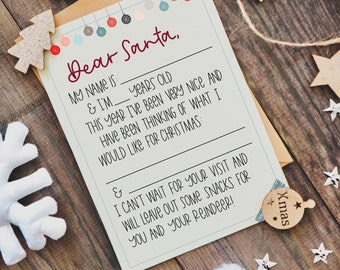 Dear Santa,
MY NAME IS
& I'M YEARS OLD
THIS YEAR I'VE BEEN VERY NICE AND
HAVE BEEN THINKING OF WHAT I
WOULD LIKE FOR CHRISTMAS
&
I CAN'T WAIT FOR YOUR VISIT AND
WILL LEAVE OUT SOME SNACKS FOR
YOU AND YOUR REINDEER!
Xmas